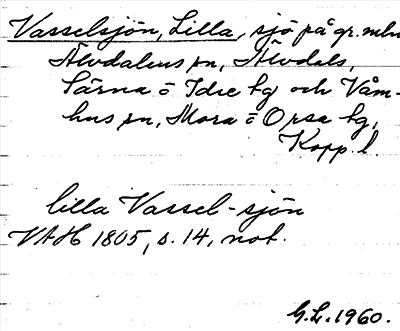 Vasselsjön, Lilla, sjö på gr. mln
Älvdalens sn, Älvdals,
Särna o Idre tg och Våm-
hus sn, Mora o Orsa tg,
Kopp l.
lilla Vassel-sjön
VAH 1805, s. 14, not.
G.L. 1960.